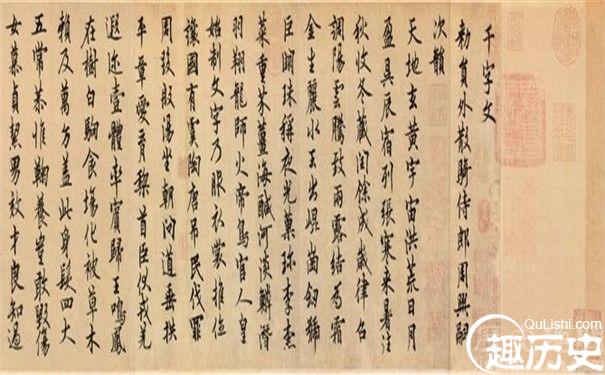 千字文
勅員外散騎侍郎周興嗣
次韻
天地玄黃宇宙洪荒日月
盈昃辰宿列張寒來暑往
秋收冬藏閏餘成歲律召
調陽雲騰致雨露結為霜
金生麗水玉出崐崗劍號
巨闕珠稱夜光菓珍李柰
菜重芥薑海鹹河淡鱗潛
羽翔龍師火帝鳥官人皇
始制文字乃服衣裳推位
讓國有虞陶唐弔民伐罪
周發殷湯坐朝問道垂拱
平章愛育黎首臣伏戎羌
遐迩壹體率賓歸王鳴鳳
在樹白駒食場化被草木
賴及萬方盖此身髮四大
五常恭惟鞠養豈敢毀傷
女慕貞絜男效才良知過
QuLishi.com
趣历史